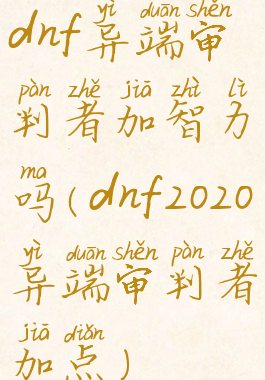 yì duān shěn
dnf异端审
pàn zhě jiā zhì lì
判者加智力
ma
吗(dnf2020
yì duān shěn pàn zhě
异端审判者
jiā diǎn
加点)